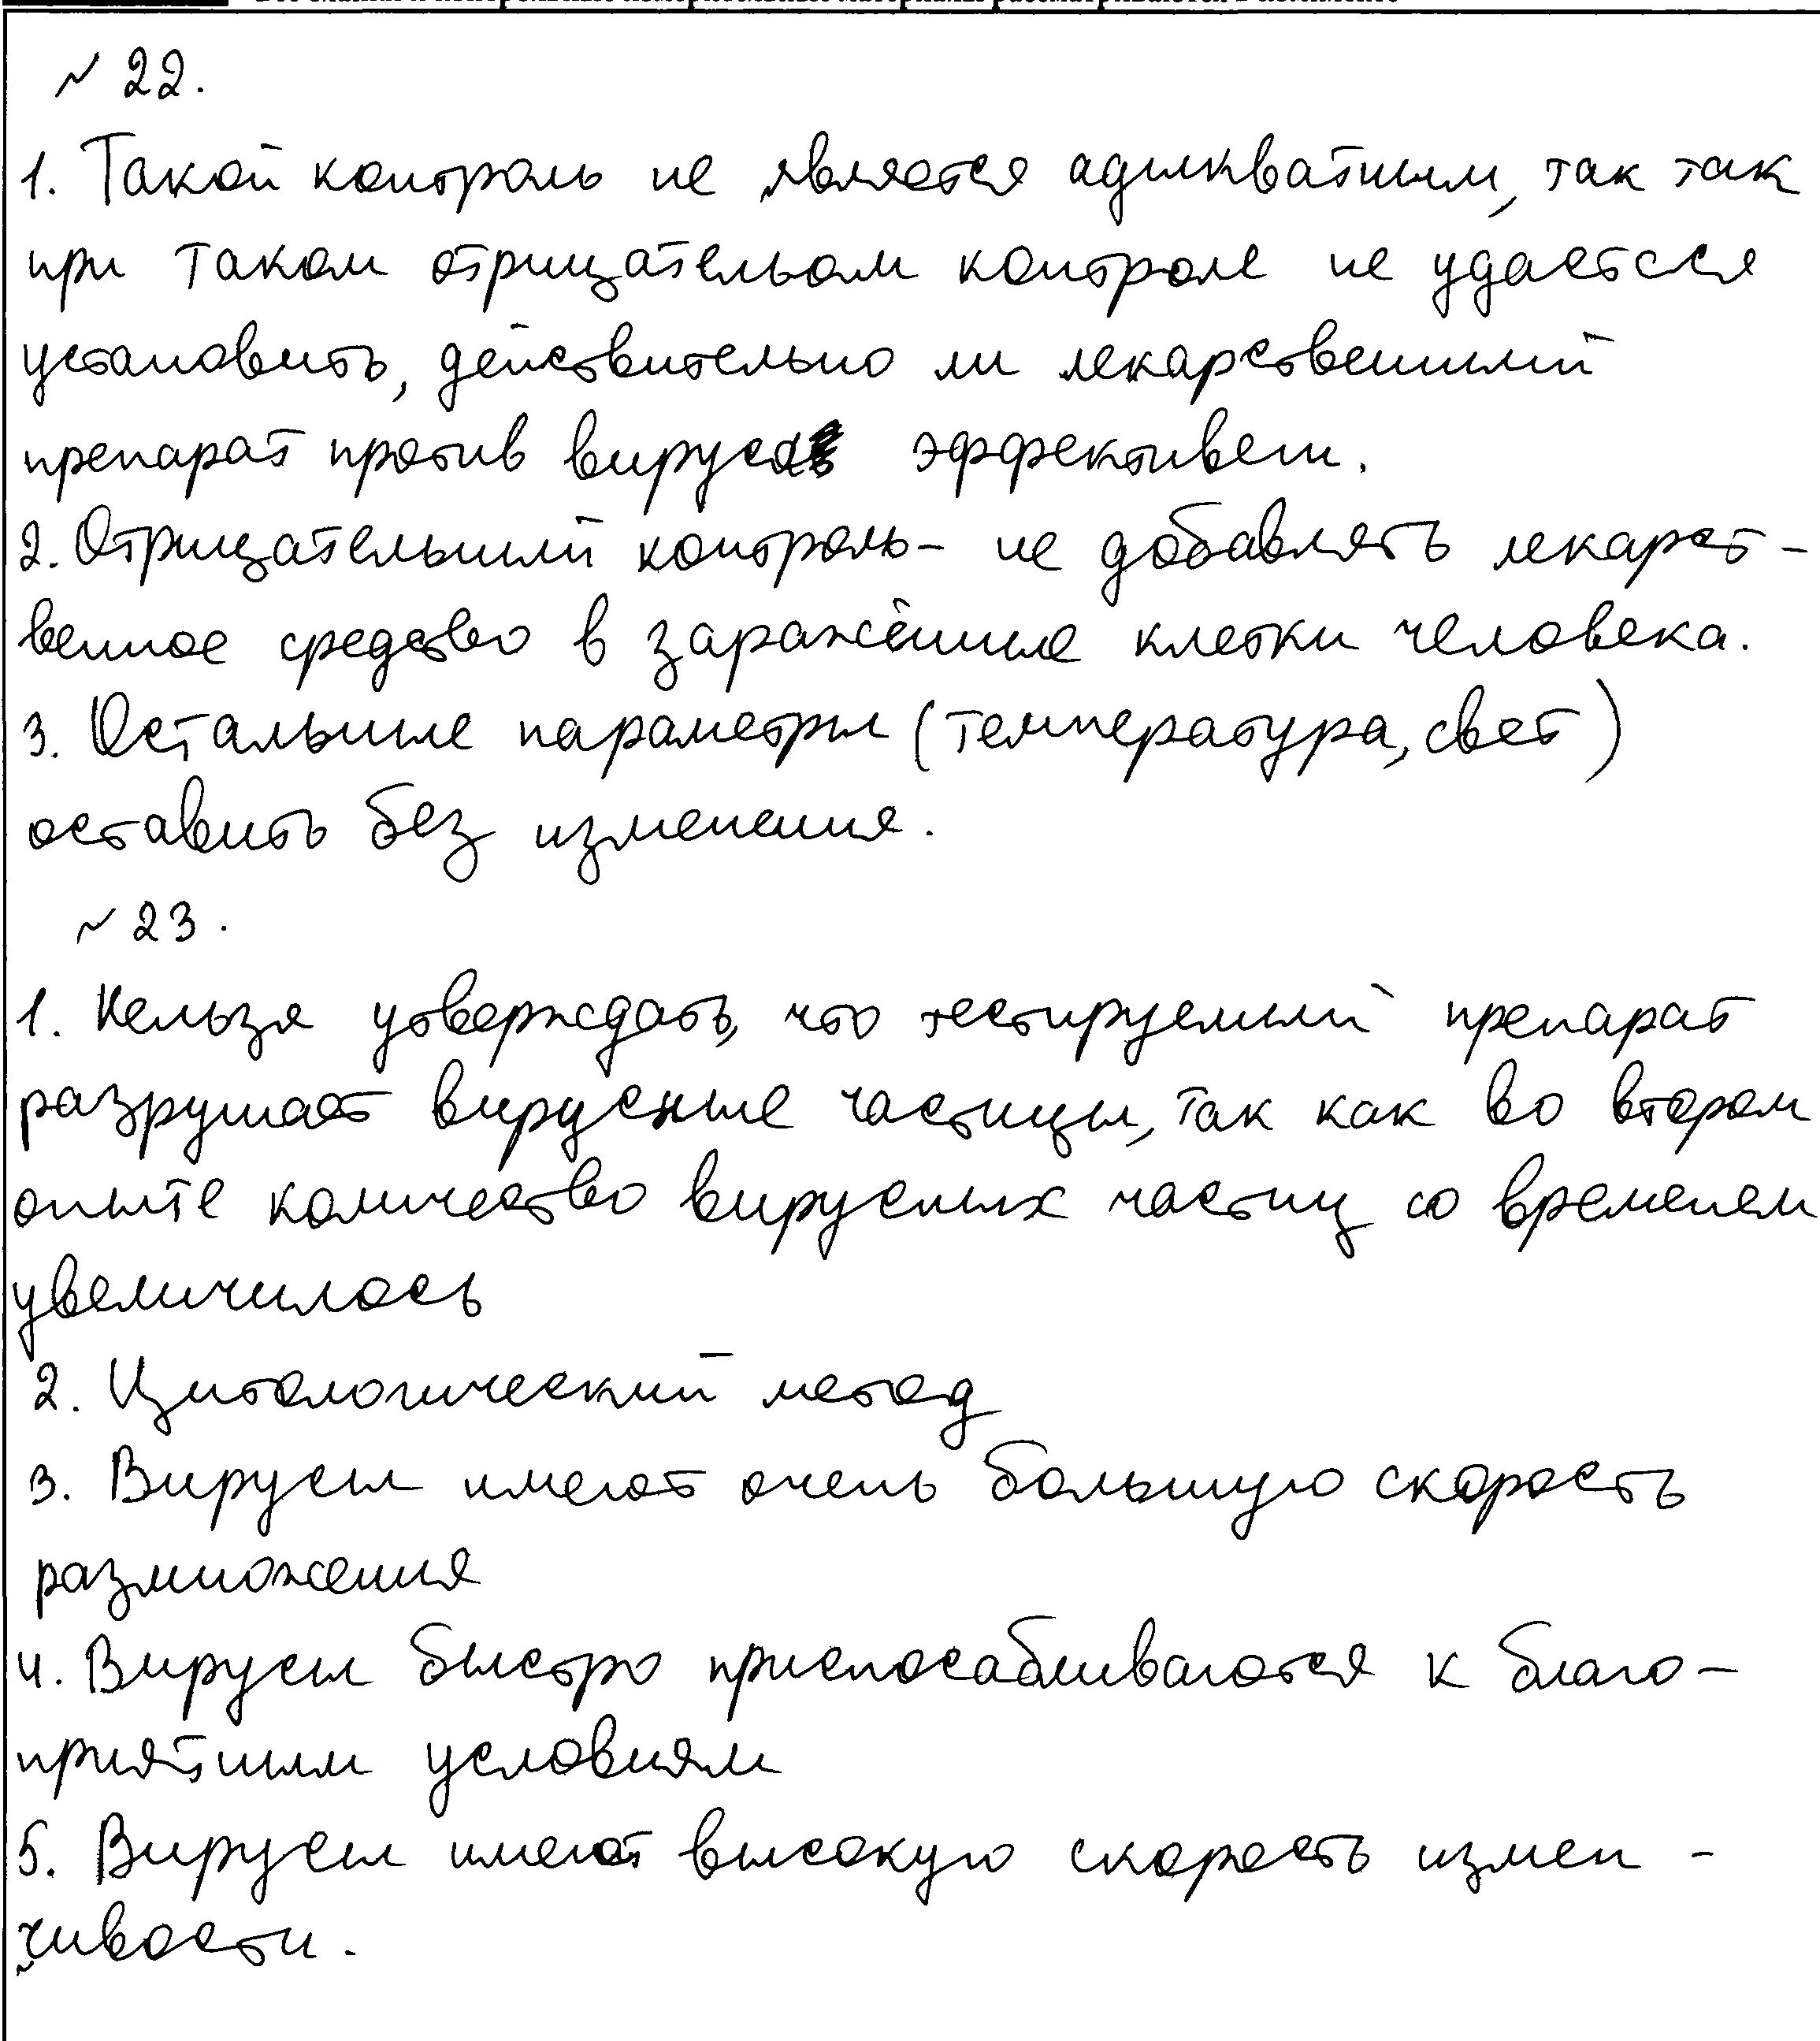 № 22.
1. Такой контроль не является адыкватным, так так
при таком отрицательом контроле не удается
установить, действительно ли лекарственный
препарат против вируса эффективен.
2. Отрицательный контроль – не добавлять лекарст-
венное средство в заражённые клетки человека.
3. Остальные параметры (температура, свет)
оставить без изменения.
№ 23.
1. Нельзя утверждать, что тестируемый препарат
разрушает вирусные частицы, так как во втором
опыте количество вирусных частиц со временем
увеличилось
2. Цитологический метод
3. Вирусы имеют очень большую скорость
размножения
4. Вирусы быстро приспосабливаются к благо-
приятным условиям
5. Вирусы имеют высокую скорость измен-
чивости.